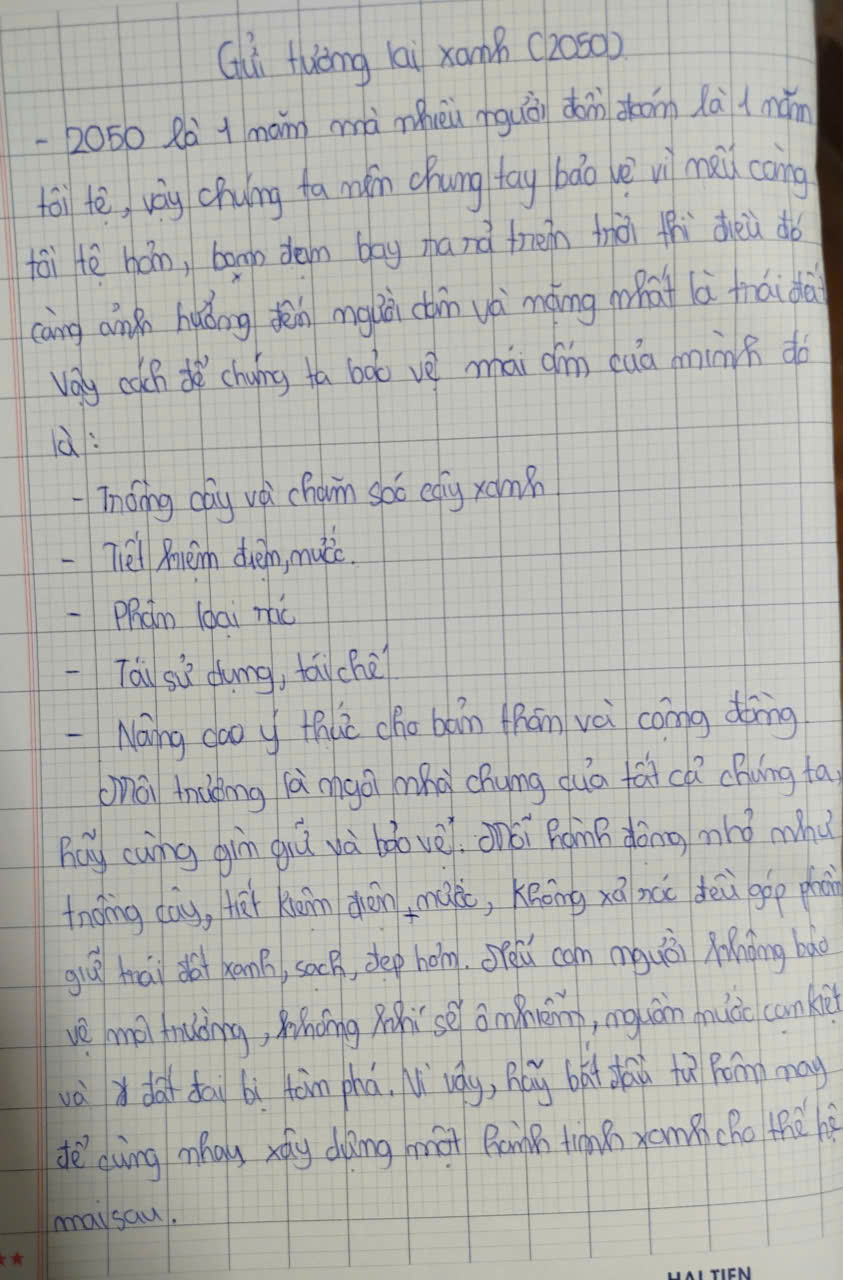 Gửi tương lai xanh (2050)
- 2050 là 1 năm mà nhiều người đồn đoán là 1 năm
tồi tệ, vậy chúng ta nên chung tay bảo vệ vì nếu càng
tồi tệ hơn, bom đạn bay trên trời thì điều đó
càng ảnh hưởng đến người dân và nặng nhất là trái đất
vậy cách để chúng ta bảo vệ mái ấm của mình đó
là:
- Trồng cây và chăm sóc cây xanh
- Tiết kiệm điện, nước.
- Phân loại rác
- Tái sử dụng, tái chế
- Nâng cao ý thức cho bản thân và cộng đồng
Môi trường là ngôi nhà chung của tất cả chúng ta,
hãy cùng gìn giữ và bảo vệ. Mỗi hành động nhỏ như
trồng cây, tiết kiệm điện, nước, không xả rác đều góp phần
giữ trái đất xanh, sạch, đẹp hơn. Nếu con người không bảo
vệ môi trường, không khí sẽ ô nhiễm, nguồn nước cạn kiệt
và đất đai bị tàn phá. Vì vậy, hãy bắt đầu từ hôm nay
để cùng nhau xây dựng một hành tinh xanh cho thế hệ
mai sau.
HẢI TIẾN